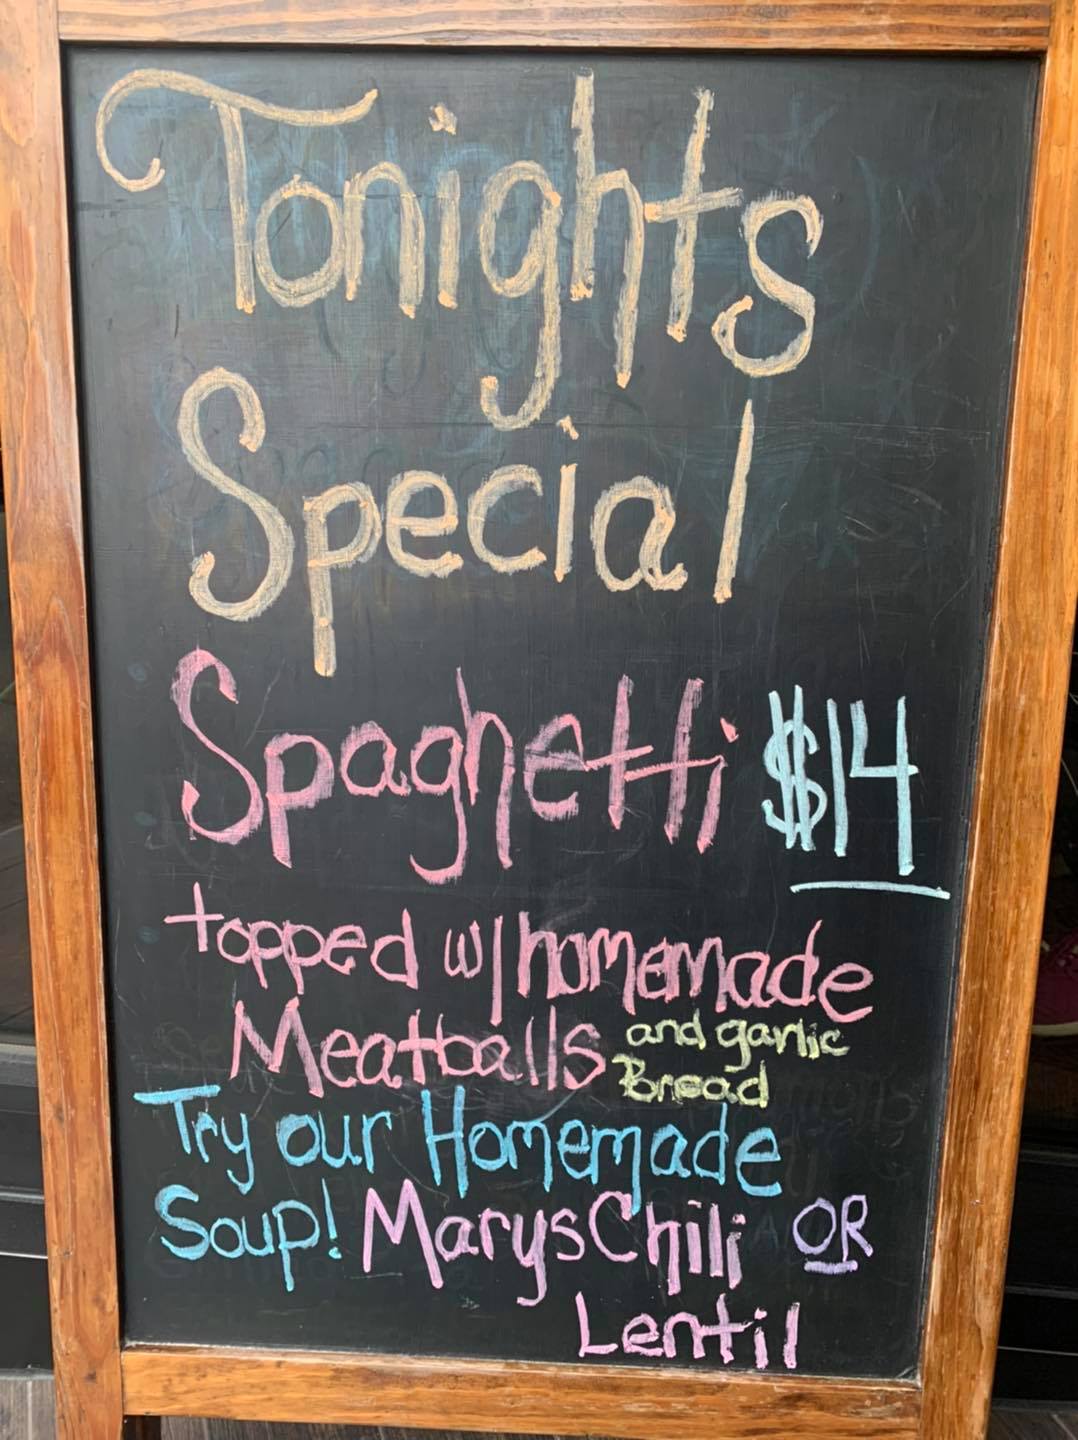 Tonights
Special
Spaghetti $14
topped w/homemade
Meatballs and garlic
Bread
Try our Homemade
Soup! Marys Chili OR
Lentil